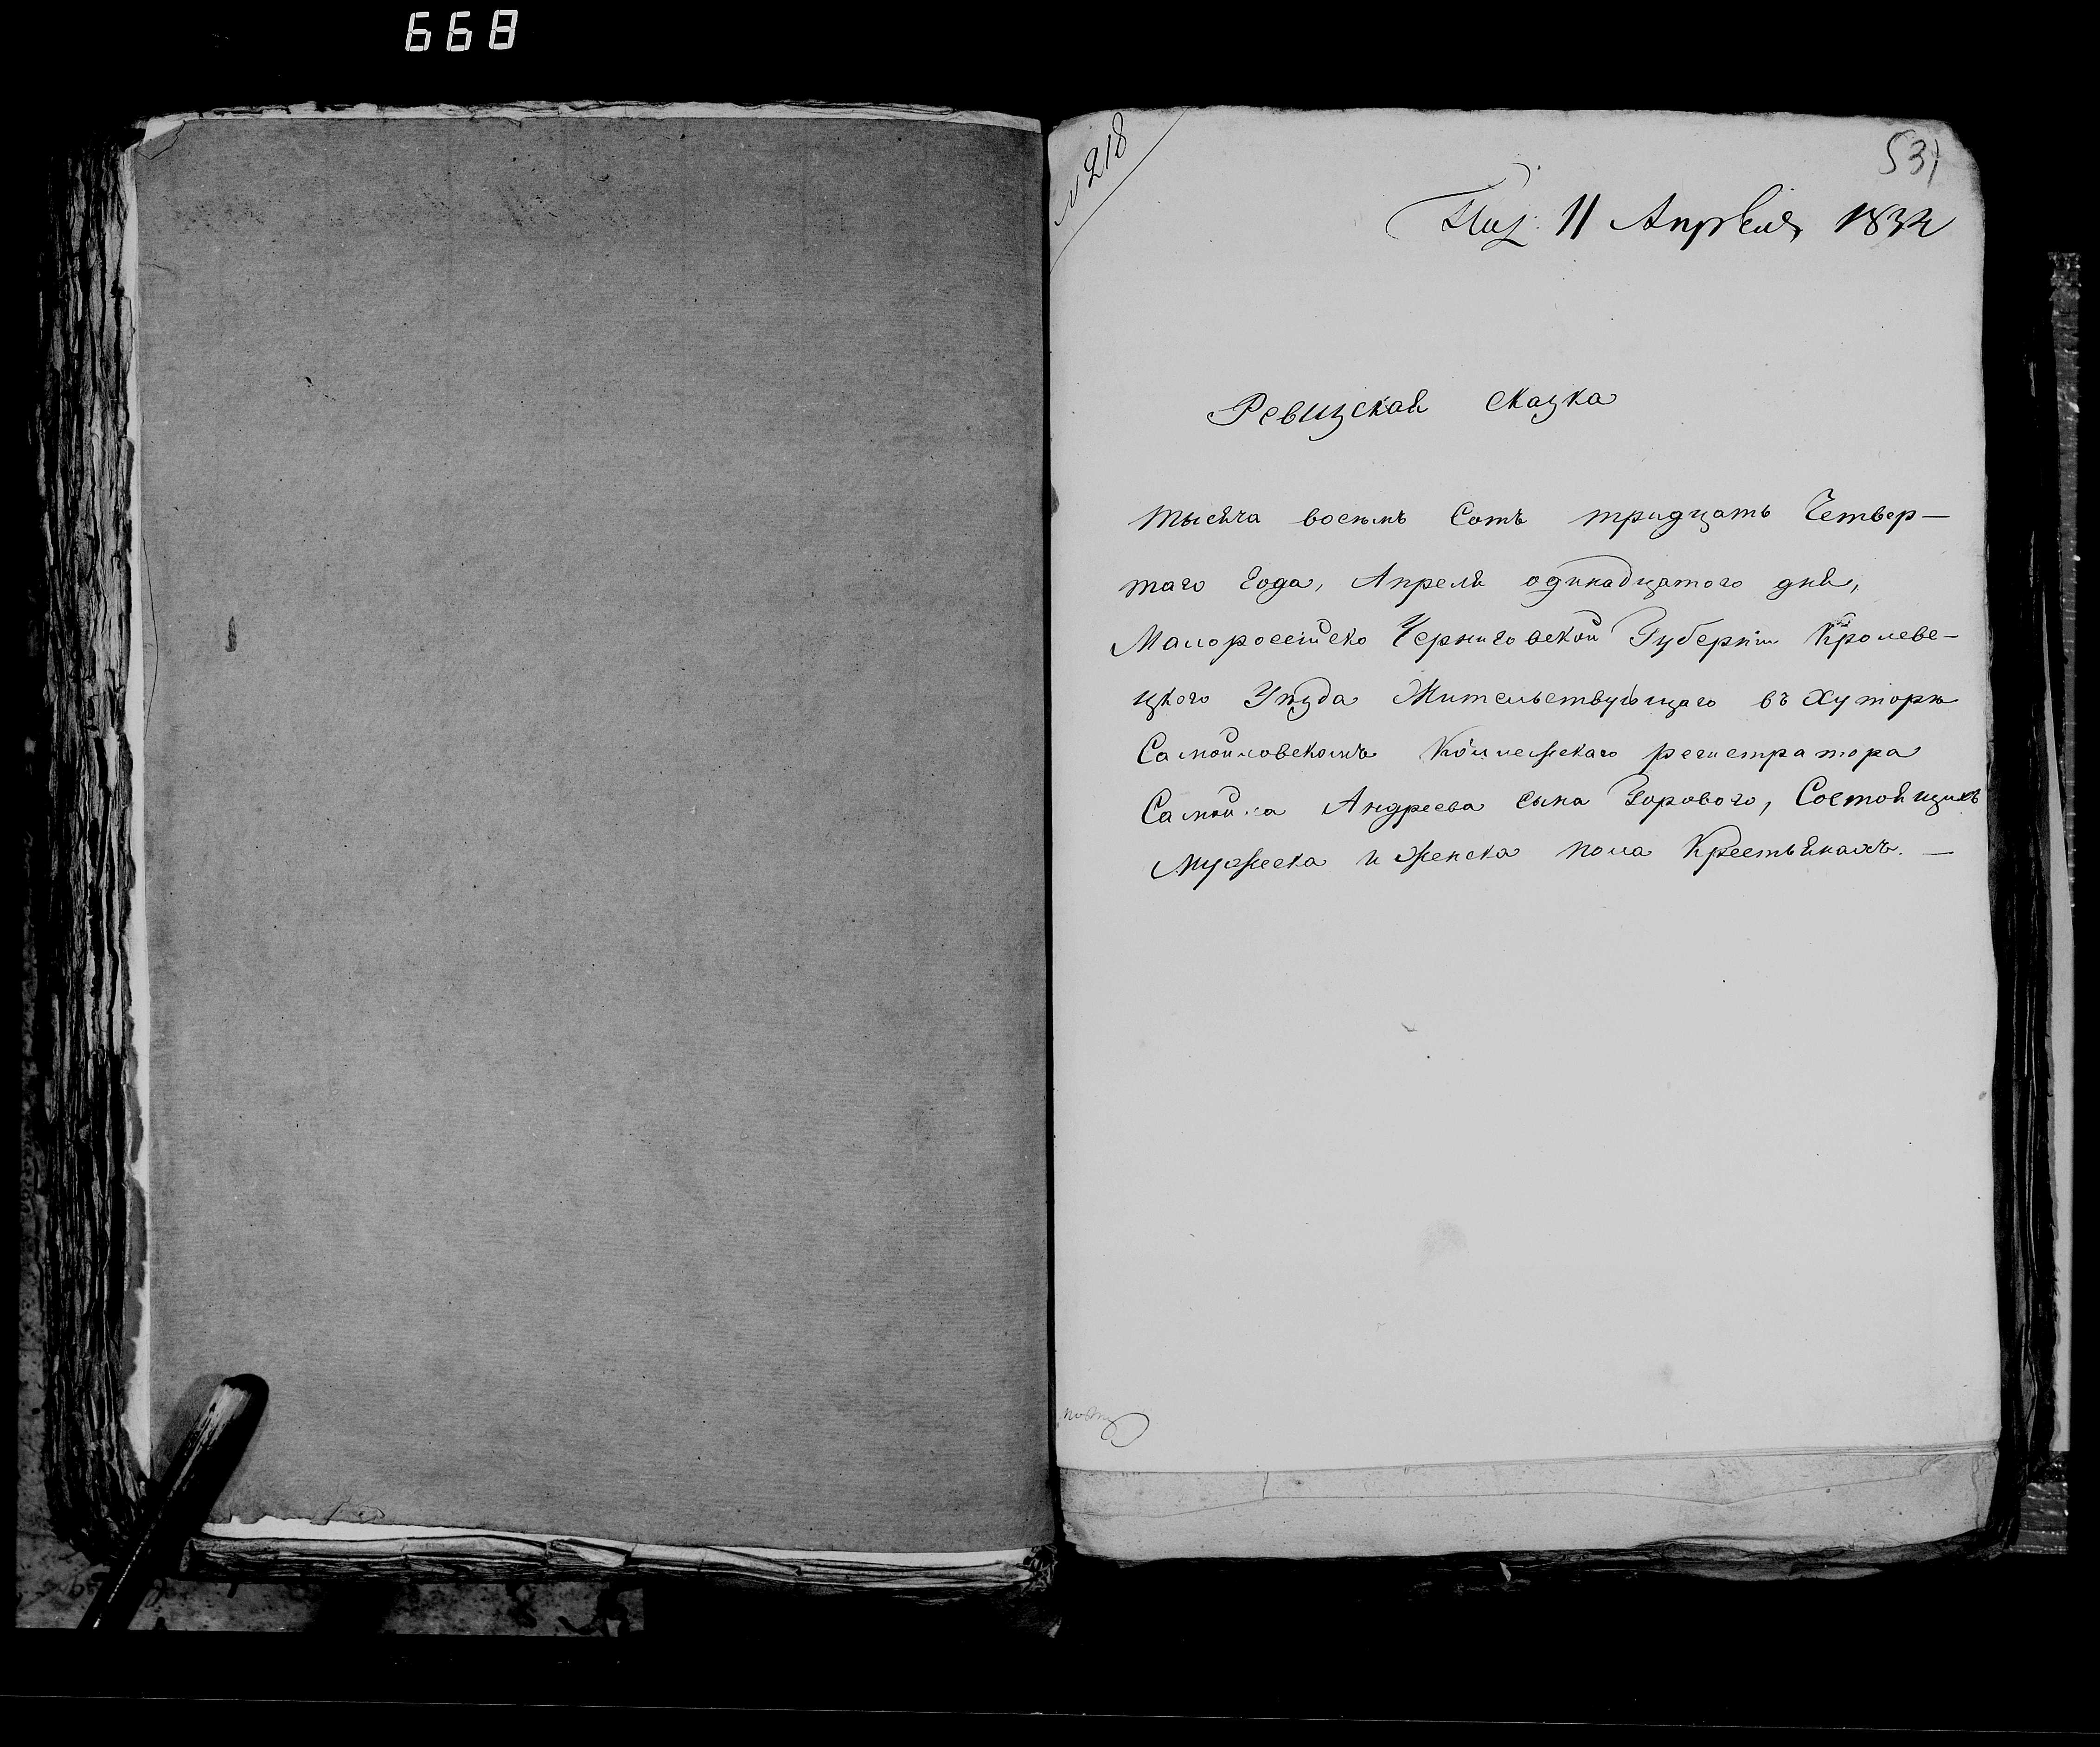 668
№ 218
531
11 Апрѣля 1834
Ревизская сказка
тысяча восемъ Сотъ тридцать Четвер—
таго Года, Апреля одинадцатого дня,
Малоросейско Черниговской Губерніи Кролеве—
цкого Уезда Жительствующаго въ Хуторѣ
Самойловскомъ Колежскаго регистратора
Самойла Андреева сына Горового, Состоящихъ
мужеска и женска пола Крестьянахъ. —